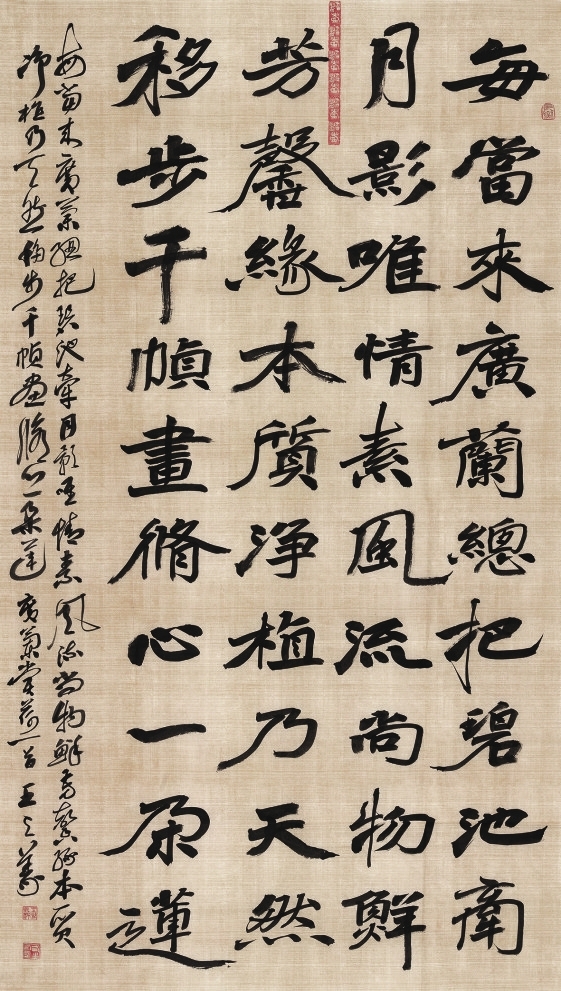 每當來廣蘭總把碧池
月影唯情素風流尚物鮮
芳馨緣本質淨植乃天然
移步千幀畫脩心一朵蓮
每當來廣蘭總把碧池牽月影唯情素風流尚物鮮芳馨緣本質
淨植乃天然移步千幀畫脩心一朵蓮 廣蘭賞荷一首 王